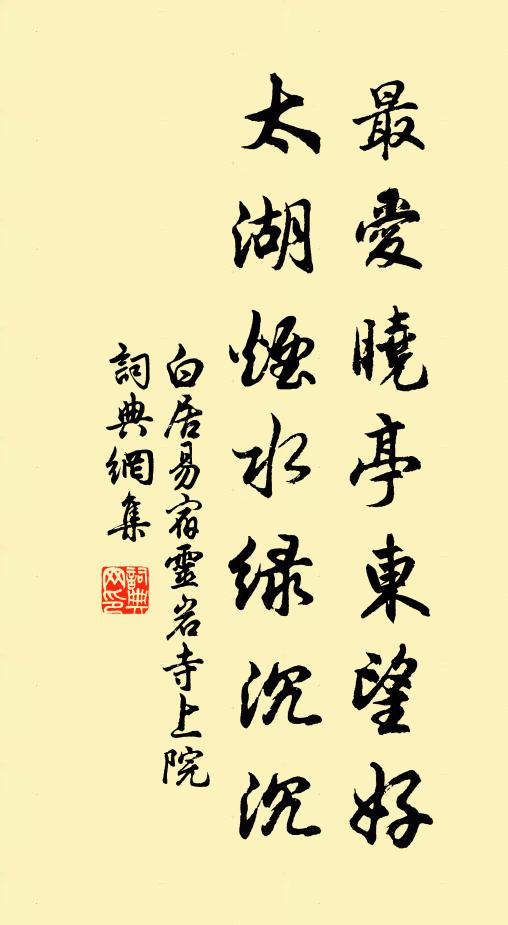 最愛曉亭東望好
太湖煙水緑沉沉
白居易宿靈岩寺上院
詞典網集
詞典網印